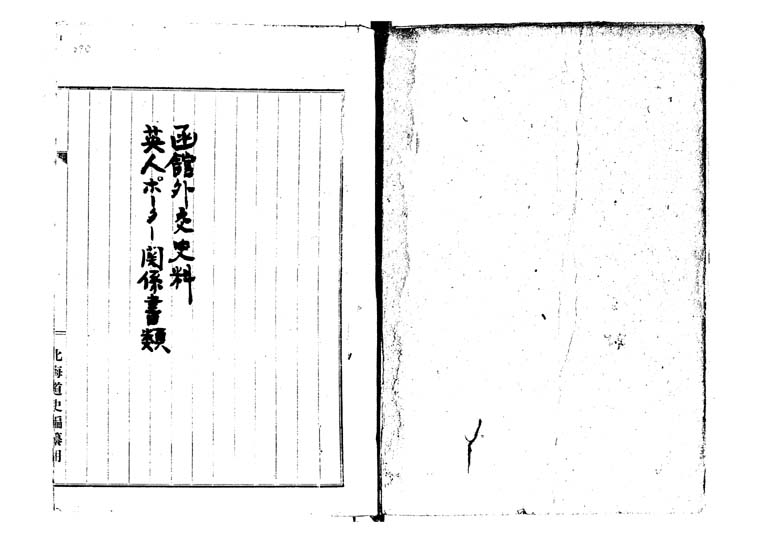 函館外交史料
英人ポーター関係書類
北海道史編纂用